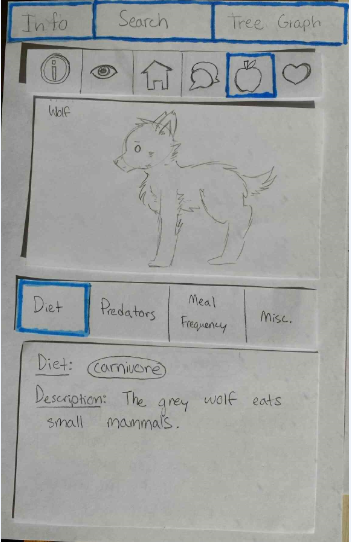 Info Search Tree Graph
i
Wolf
Diet Predators Meal Frequency Misc.
Diet: carnivore
Description: The grey wolf eats
small mammals.